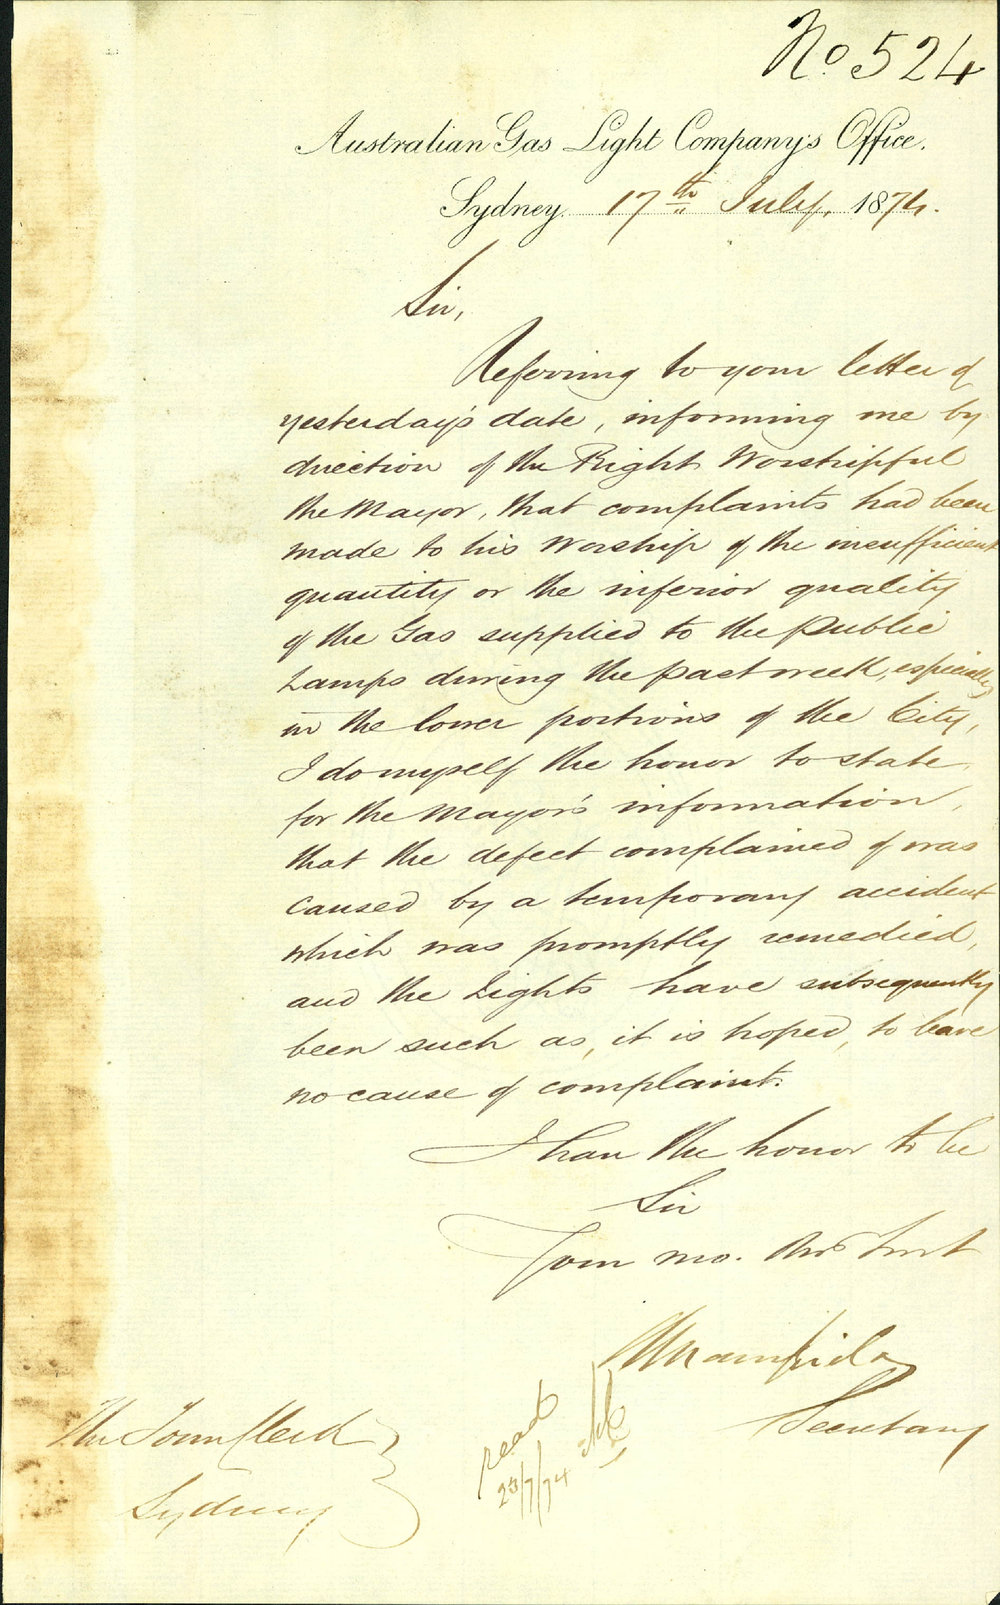 No. 524
Australian Gas Light Company's Office.
Sydney 17th July, 1874.
Sir,
Referring to your letter of
yesterday's date, informing me by
direction of the Right Worshipful
the Mayor, that complaints had been
made to his Worship of the insufficient
quantity or the inferior quality
of the Gas supplied to the Public
Lamps during the past week, especially
in the lower portions of the City,
I do myself the honor to state,
for the Mayor's information,
that the defect complained of was
caused by a temporary accident
which was promptly remedied,
and the Lights have subsequently
been such as, it is hoped, to leave
no cause of complaint.
I have the honor to be
Sir
Your mo. Obt Servt
Secretary
The Town Clerk
Sydney
read
23/7/74